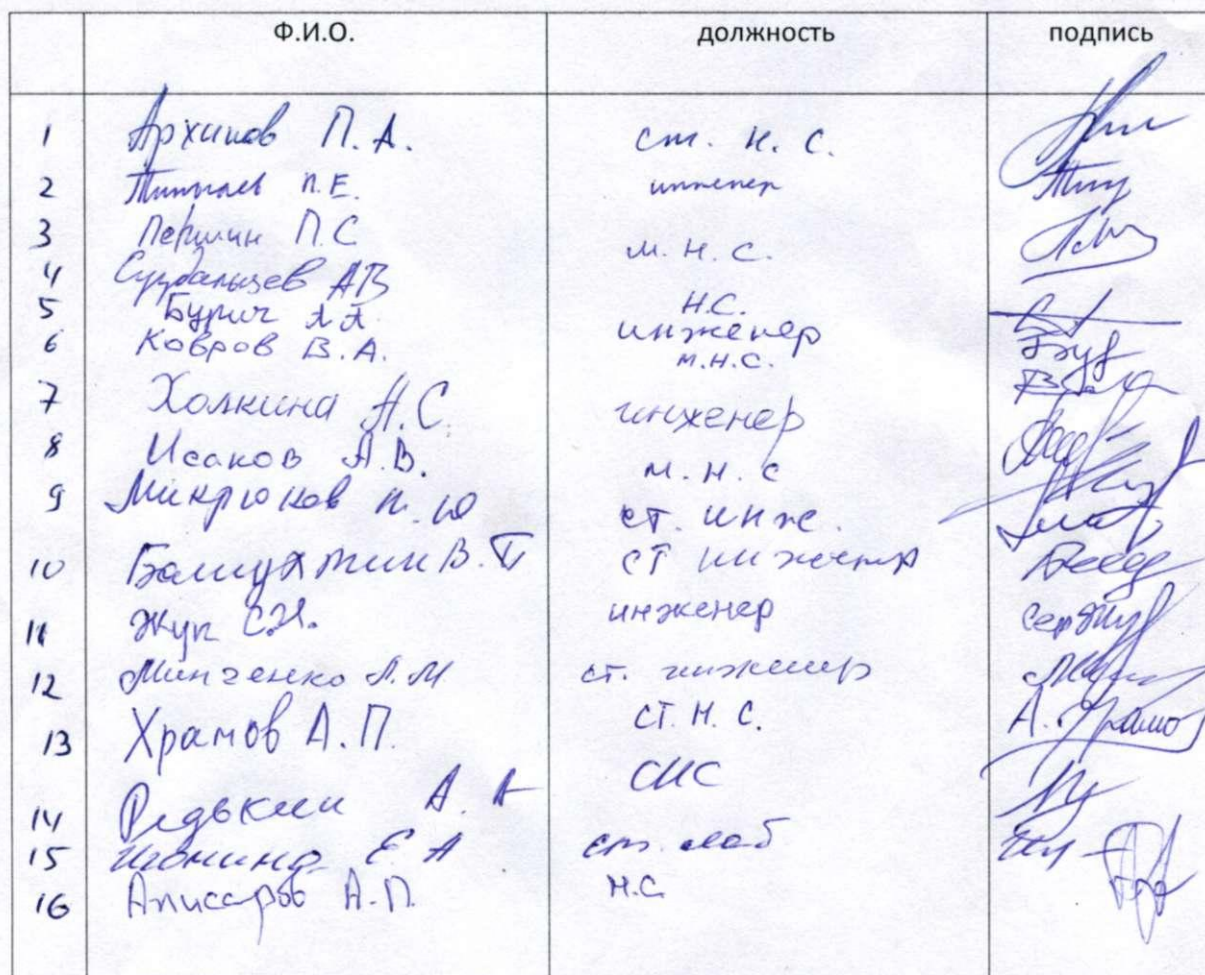 Ф.И.О. должность подпись
1 Архипов П.А. ст. н. с.
2 П.Е. инженер
3 Першин П.С м.н.с.
4 Суздальцев АВ Н.С.
5 инженер
6 Ковров В.А. м.н.с.
7 Холкина А.С. инженер
8 Исаков А.В. м.н.с
9 Микрюков М.Ю ст. инже.
10 ст инженер
11 Жук С.И. инженер
12 Минченко Л.М ст. инженер
13 Храмов А.П. ст.н.с.
14 Редькин А.А СНС
15 Е А ст. лаб
16 Аписаров А.П. н.с